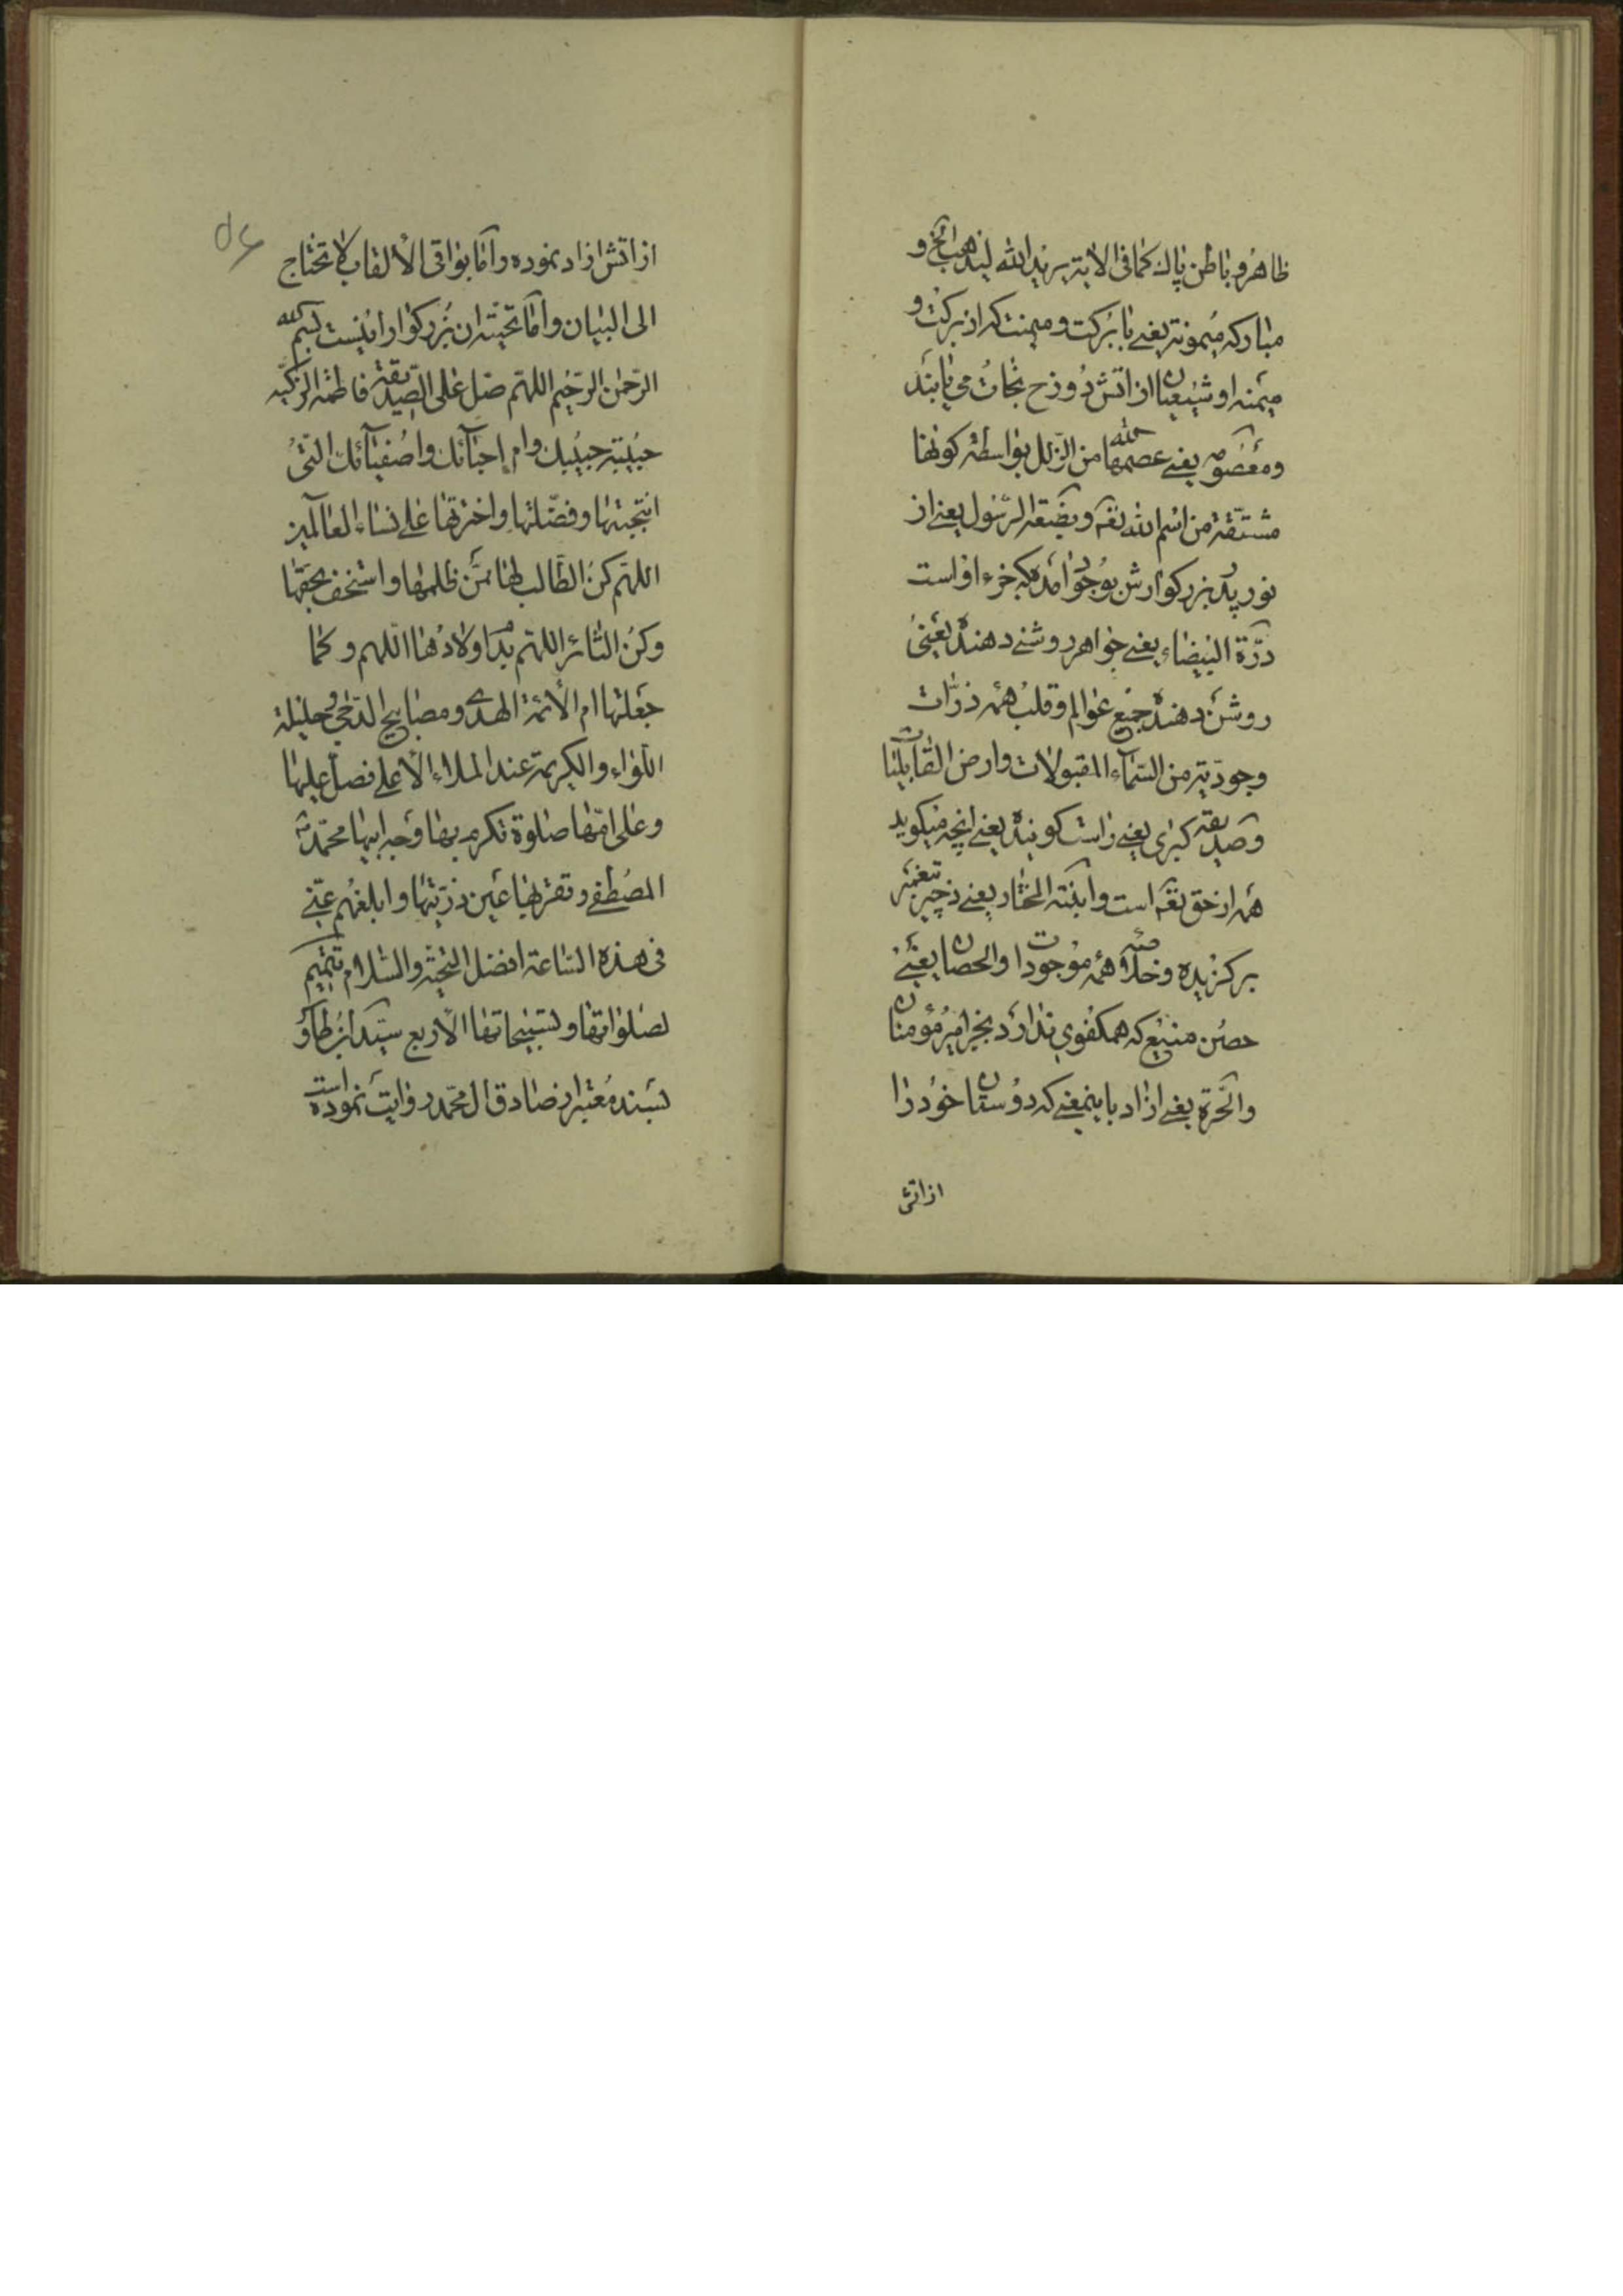 ظاهر و باطن پاك كما فی الایة یرید الله لیذهب الخ و
مباركه میمونة یعنی با بركت و میمنت كه از بركت و
میمنه او شیعیان از اتش دوزخ نجات می یابند
و معصومه یعنی عصمها الله من الزلل بواسطه كونها
مشتقة من اسم الله تعه و بضعة الرسول یعنی از
نور پدر بزركوارش بوجود امده كه جزء او است
درّة البیضاء یعنی جواهر روشنی دهنده یعنی
روشنی دهنده جمیع عوالم و قلب همه ذرّات
وجودیّة من السّماء المقبولات و ارض القابلیات
و صدیقه كبری یعنی راست كوینده یعنی انچه میكوید
همه از حق تعه است و ابنته المختار یعنی دختر پیغمبر
بركزیده و خلاصه همه موجودات و الحصان یعنی
حصن منیع كه همكفوی ندارد بجز امیر مؤمنان
و الحّرة یعنی ازاد باینمعنی كه دوستان خود را
از اتش
از اتش ازاد نموده و امّا بواقی الألقاب لا تحتاج
الی البیان و امّا تحیته ان بزركوار اینست بسم الله
الرّحمن الرّحیم اللهّم صلّ علی الصّدیقة فاطمة الزكیّه
حبیبة حبیبك و ام احبائك و اصفیائك الّتی
انتجبتها و فضّلتها و اخترتها علی نساء العالمین
اللهّم كن الطّالب لها ممّن ظلمها و استخف بحقّها
و كن الثائر اللهّم بدم اولادها اللّهم و كما
جعلتها ام الأئمّة الهدی و مصابیح الدّجی و حلیلة
اللّواء و الكریمة عند الملاء الأعلی فصلّ علیها
و علی امّها صلوة تكرم بها وجه ابیها محمّد
المصطفی و تقرّ بها اعین ذرّیتها و ابلغهم عنّی
فی هذه السّاعة افضل التّحیّة و السّلام تتمیم
لصلواتها و تسبیحاتها الأربع سیّد ابن طاؤ
بسند معتبر از صادق ال محمّد روایت نموده است